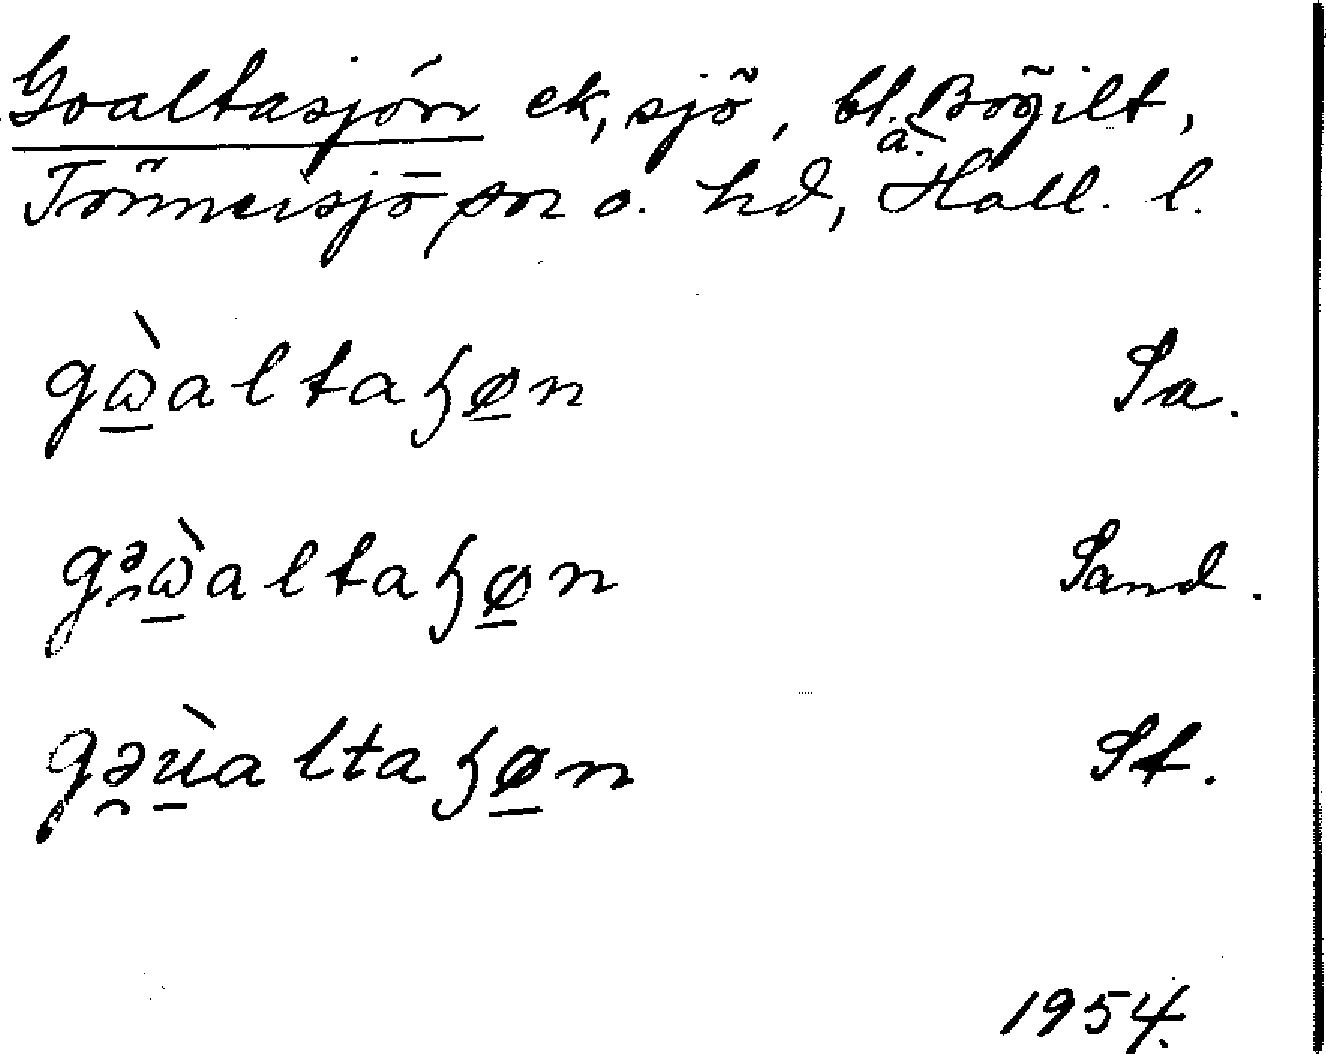 Goaltasjön ek, sjö, bl. a. Bögilt,
Tönnersjö sn o. hd, Hall. l.
gὼ̱altaɧø̱n Sa.
gə̯ὼ̱altaɧø̱n Sand.
gə̯ù̱altaɧø̱n St.
1954.